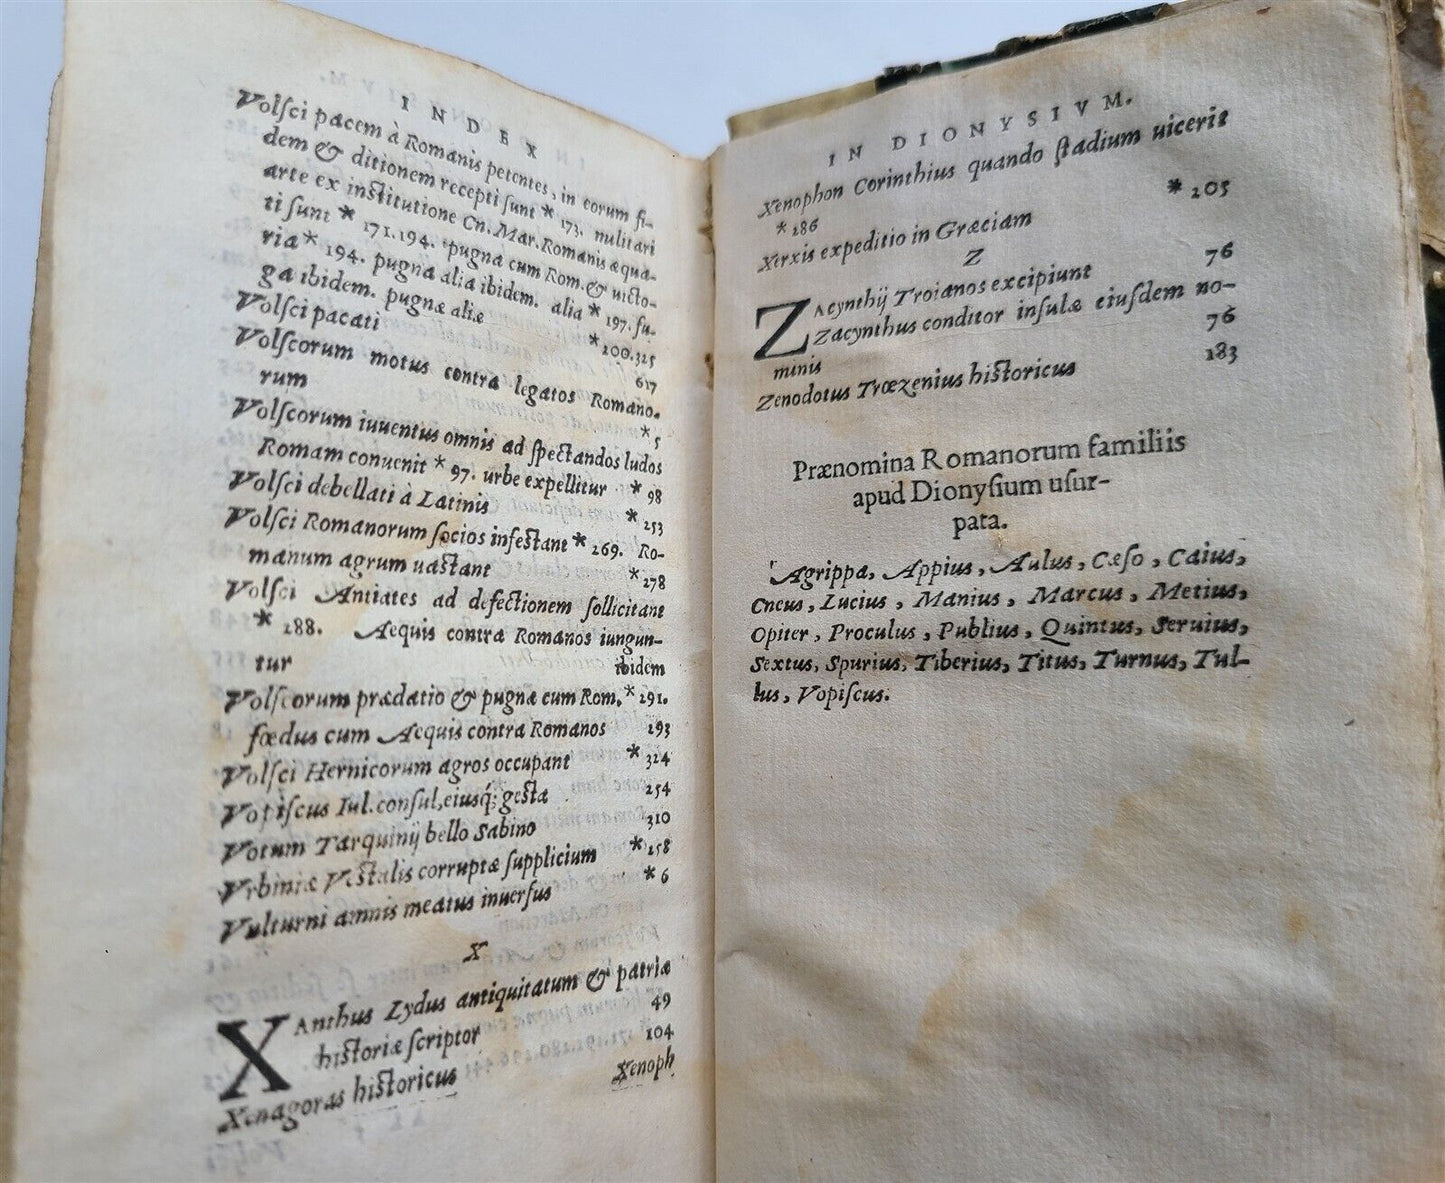 INDEX
Volſci pacem à Romanis petentes, in eorum fi-
dem & ditionem recepti ſunt * 173. militari
arte ex inſtitutione Cn. Mar. Romanis æqua-
ti ſunt * 171.194. pugna cum Rom. & uicto-
ria * 194. pugna alia ibidem. alia * 197. fu-
ga ibidem. pugnæ aliæ * 200.325
Volſci pacati 617
Volſcorum motus contra legatos Romano-
rum * 5
Volſcorum iuuentus omnis ad ſpectandos ludos
Romam conuenit * 97. urbe expellitur * 98
Volſci debellati à Latinis * 253
Volſci Romanorum ſocios infeſtant * 269. Ro-
manum agrum uaſtant * 278
Volſci Antiates ad defectionem ſollicitant
* 288. Aequis contra Romanos iungun-
tur ibidem
Volſcorum prædatio & pugna cum Rom. * 291.
fœdus cum Aequis contra Romanos 293
Volſci Hernicorum agros occupant * 324
Vopiſcus Iul. conſul, eiusq; geſta 254
Votum Tarquinij bello Sabino 310
Vrbiniæ Veſtalis corruptæ ſupplicium * 258
Vulturni amnis meatus inuerſus * 6
X
XAnthus Lydus antiquitatum & patriæ
hiſtoriæ ſcriptor 49
Xenagoras hiſtoricus 104
Xenoph
IN DIONYSIVM.
Xenophon Corinthius quando ſtadium uicerit
* 286
Xerxis expeditio in Græciam * 205
Z
ZAcynthij Troianos excipiunt 76
Zacynthus conditor inſulæ eiuſdem no-
minis 76
Zenodotus Trœzenius hiſtoricus 183
Prænomina Romanorum familiis
apud Dionyſium uſur-
pata.
Agrippa, Appius, Aulus, Cæſo, Caius,
Cneus, Lucius, Manius, Marcus, Metius,
Opiter, Proculus, Publius, Quintus, Seruius,
Sextus, Spurius, Tiberius, Titus, Turnus, Tul-
lus, Vopiſcus.